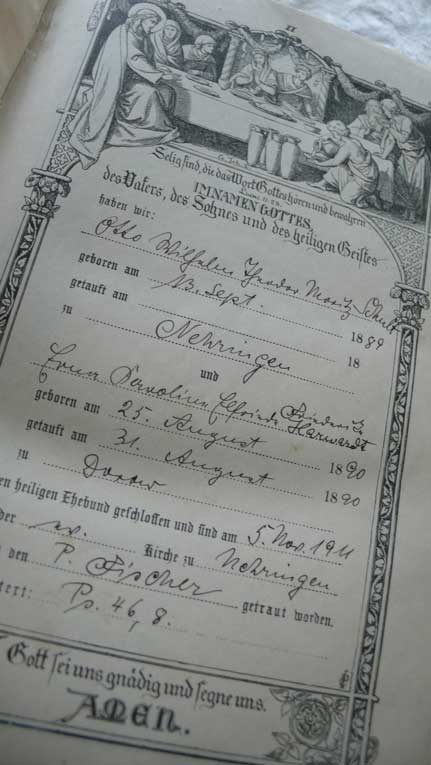 II
Selig sind, die das Wort Gottes hören und bewahren
IM NAMEN GOTTES,
des Vaters, des Sohnes und des heiligen Geistes
haben wir:
Otto Wilhelm Theodor Moritz
geboren am 13. Sept. 1889
getauft am 18
zu Nehringen
und
Erna Karoline Elfriede Friederike Harwardt
geboren am 25. August 1890
getauft am 31. August 1890
zu
en heiligen Ehebund geschlossen und sind am 5 Nov. 1911
der ev. Kirche zu Nehringen
den P. Fischer getraut worden.
tert: Ps. 46, 8.
Gott sei uns gnädig und segne uns.
AMEN.